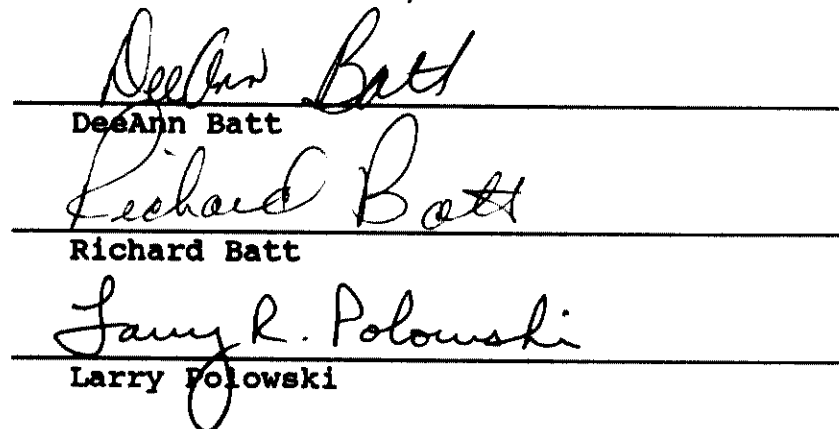 DeeAnn Batt
DeeAnn Batt
Richard Batt
Richard Batt
Larry R. Polowski
Larry Polowski